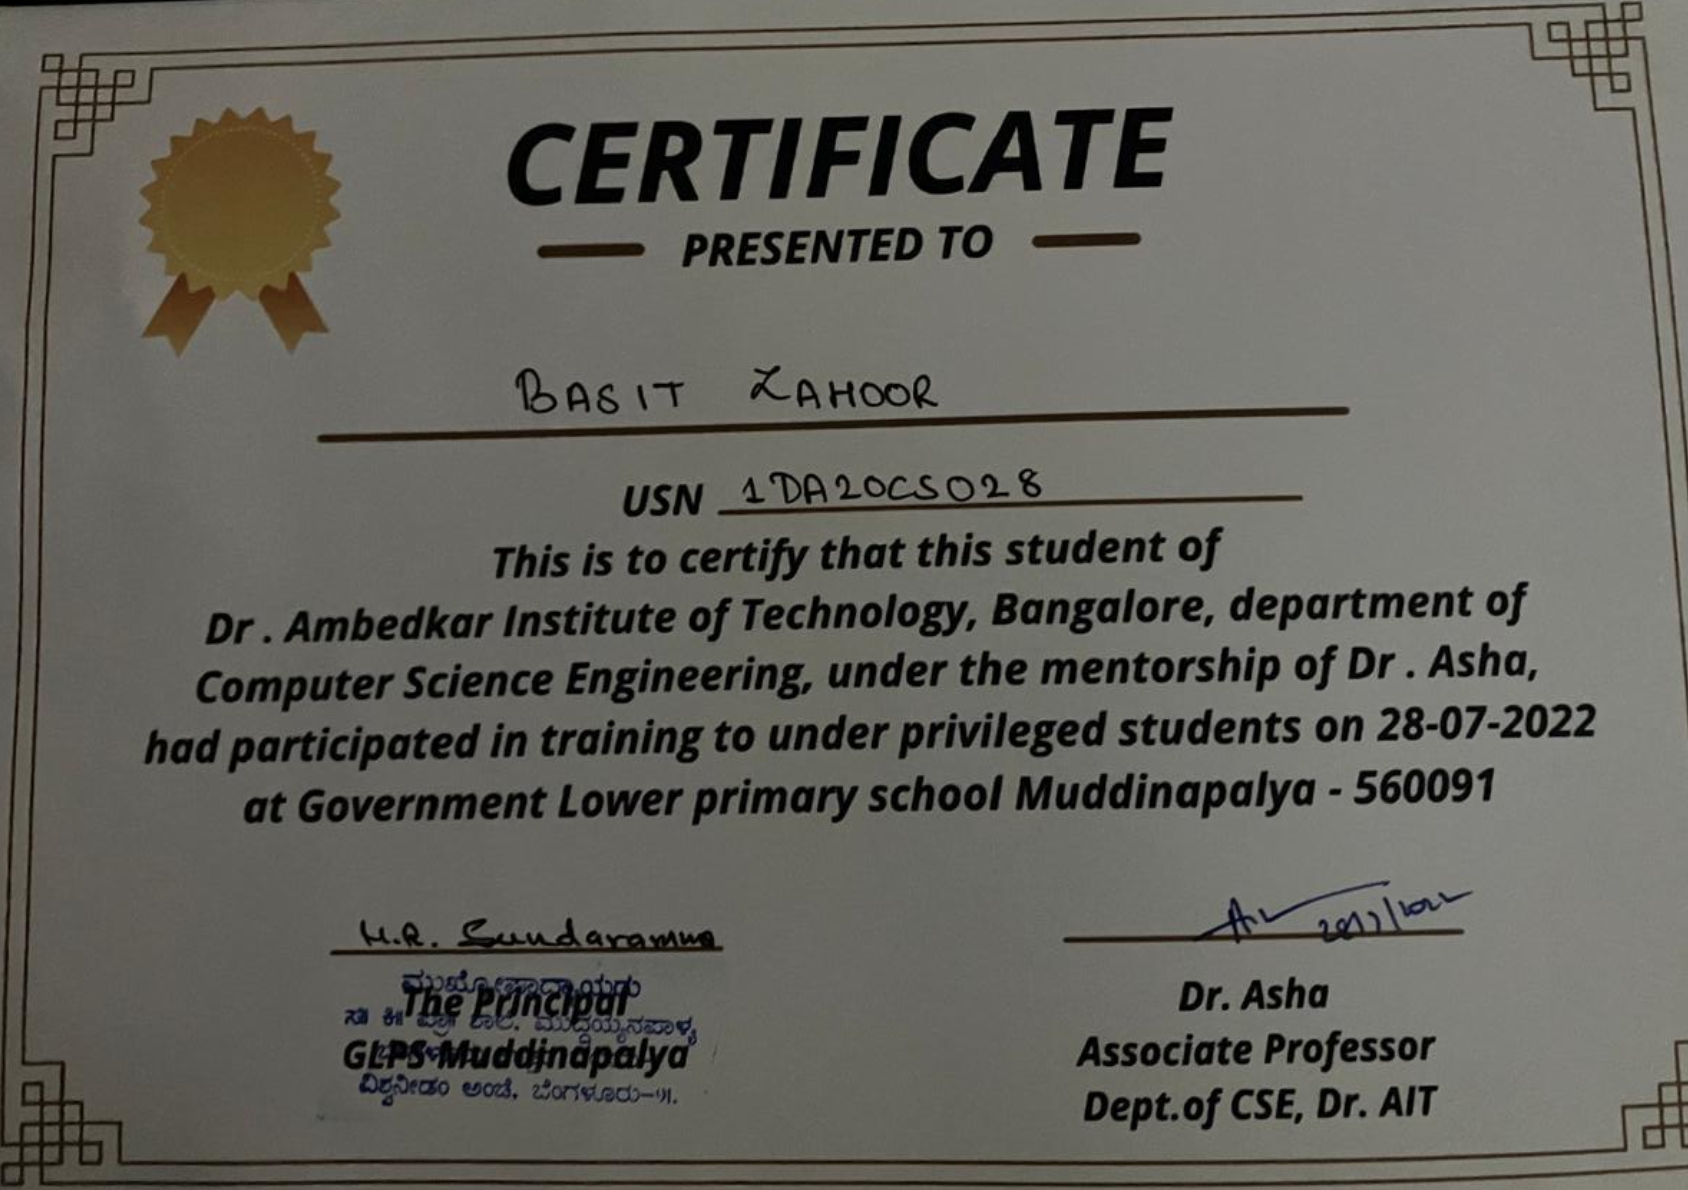 CERTIFICATE
PRESENTED TO
BASIT ZAHOOR
USN 1DA20CS028
This is to certify that this student of
Dr . Ambedkar Institute of Technology, Bangalore, department of
Computer Science Engineering, under the mentorship of Dr . Asha,
had participated in training to under privileged students on 28-07-2022
at Government Lower primary school Muddinapalya - 560091
H.R. Sundaramma
ಮುಖ್ಯೋಪಾಧ್ಯಾಯರು
The Principal
ಮುದ್ದಯ್ಯನಪಾಳ್ಯ
GLPS-Muddinapalya
ವಿಶ್ವನೀಡಂ ಅಂಚೆ, ಬೆಂಗಳೂರು-೯೧.
Dr. Asha
Associate Professor
Dept.of CSE, Dr. AIT